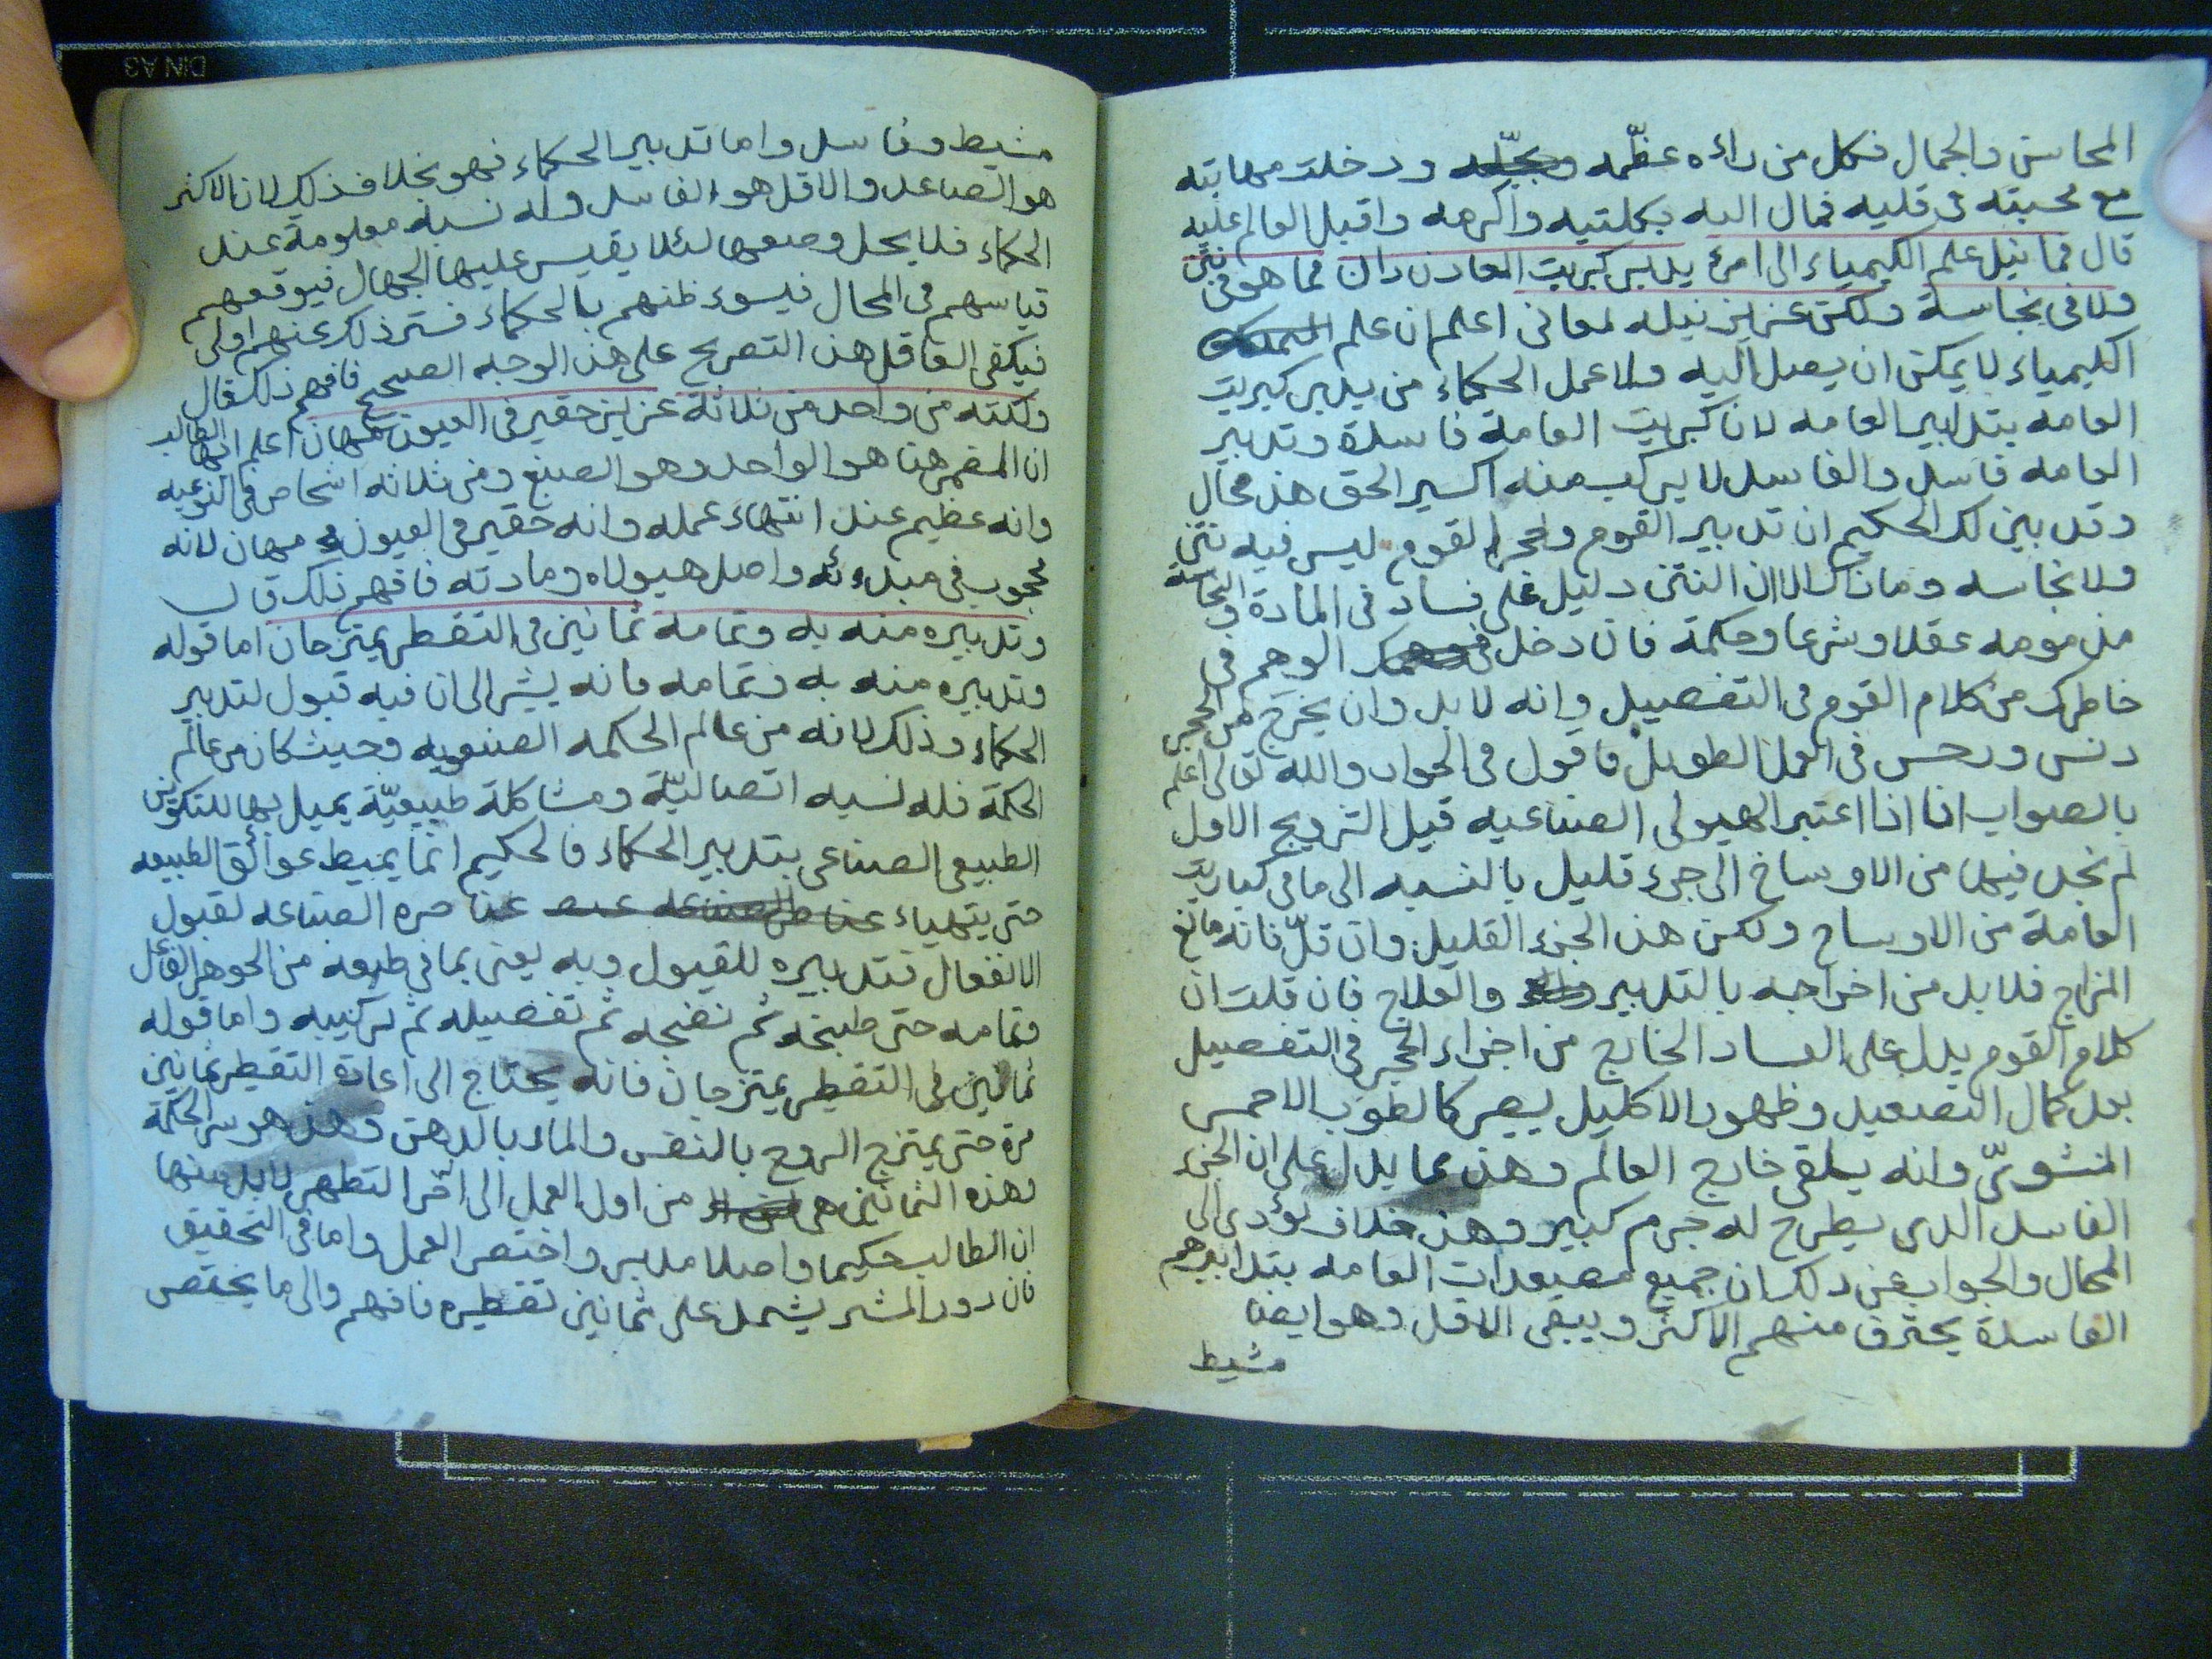 المحاسن والجمال فكل من راءه عظّمه وبجّله ودخلت مهابته
مع محبته فى قلبه فمال اليه بكلتيه واكرمه واقبل العالم عليه
قال فما نيل علم الكيمياء الى امرئ يدبر كبريت المعادن دان فما هو فى نتن
ولا فى نجاسة ولكن عزيز نيله لمعانى اعلم ان علم
الكيمياء لا يمكن ان يصل اليه ولا عمل الحكماء من يدبر كبريت
العامه بتدابير العامه لان كبريت العامة فاسدة وتدبير
العامه فاسد والفاسد لا يركب منه اكسير الحق هذ محال
وقد بين لك الحكيم ان تدبير القوم وحجر القوم ليس فيه نتن
ولا نجاسه وما ذاك الا ان النتن دليل على فساد فى المادة والنجاسة
مذمومه عقلا وشرعا وحكمة فان دخل الوهم فى
خاطرك من كلام القوم فى التفصيل وانه لابد وان يخرج من الحجر
دنس ورجس فى العمل الطويل فاقول فى الجواب والله تعالى اعلم
بالصواب انا اذا اعتبر الهيولى الصناعيه قبل التزويج الاول
لم نجد فيها من الاوساخ الى جزء قليل بالنسبه الى ما فى كباريت
العامة من الاوساخ ولكن هذا الجزء القليل وان قلّ فانه مانع
المزاج فلابد من اخراجه بالتدبير والعلاج فان قلت ان
كلام القوم يدل على الفساد الخارج من اجزاء الحجر فى التفصيل
بعد كمال التصعيد وظهور الاكليل يصير كالطوب الاحمر
المشوىّ وانه يلقى خارج العالم وهذ مما يدل على ان الجزء
الفاسد الذى يطرح له جرم كبير وهذ خلاف يؤدى الى
المحال والجواب عن ذلك ان جميع مصعدات العامه بتدابيرهم
الفاسدة يحترق منهم الاكثر ويبقى الاقل وهو ايضا
مشيط
مشيط وفاسد واما تدبير الحكماء فهو بخلاف ذلك لان الاكثر
هو الصاعد والاقل هو الفاسد وله نسبه معلومة عند
الحكماء فلا يحل وضعها لئلا يقيس عليها الجهال فيوقعهم
قياسهم فى المحال فيسوء ظنهم بالحكماء فستر ذلك عنهم اولى
فيكفى العاقل هذ التصريح على هذ الوجه الصحيح فافهم ذلك قال
ولكنه من واحد من ثلاثة عزيز حقير فى العيون مهان اعلم ايها الطالب
ان المضمر هنا هو الواحد وهو الصبغ ومن ثلاثه اشخاص فى النوعيه
وانه عظيم عند انتهاء عمله وانه حقير فى العيون مهان لانه
محجوب فى مبدءئه واصل هيولاه ومادته فافهم ذلك قال
وتدبيره منه به وتمامه ثمانين فى التقطير يمتزجان اما قوله
وتدبيره منه به وتمامه فانه يشير الى ان فيه قبول لتدبير
الحكماء وذلك لانه من عالم الحكمه الصنعويه وحيث كان من عالم
الحكمة فله نسبه اتصاليّة ومشاكلة طبيعيّة يميل بها للتكوين
الطبيعى الصناعى بتدبير الحكماء فالحكيم انما يميط عوائق الطبيعه
حتى يتهياء عناصر الصناعه عناصره الصناعه لقبول
الانفعال فتدبيره للقبول وبه يعنى بما فى طبعه من الجوهر القابل
وتمامه حتى طبخه ثم نضجه ثم تفصيله ثم تركيبه واما قوله
ثمانين فى التقطير يمتزجان فانه يحتاج الى اعادة التقطير ثمانين
مرة حتى يمتزج الروح بالنفس والماء بالدهن وهذ هو سر الحكمة
وهذه الثمانين هى من اول العمل الى اخر التطهير لابد منها
ان الطالب حكيما واصلا مدبر واختصر العمل واما فى التحقيق
فان دور المشتر يشمل على ثمانين تقطيره فافهم والى ما يختص